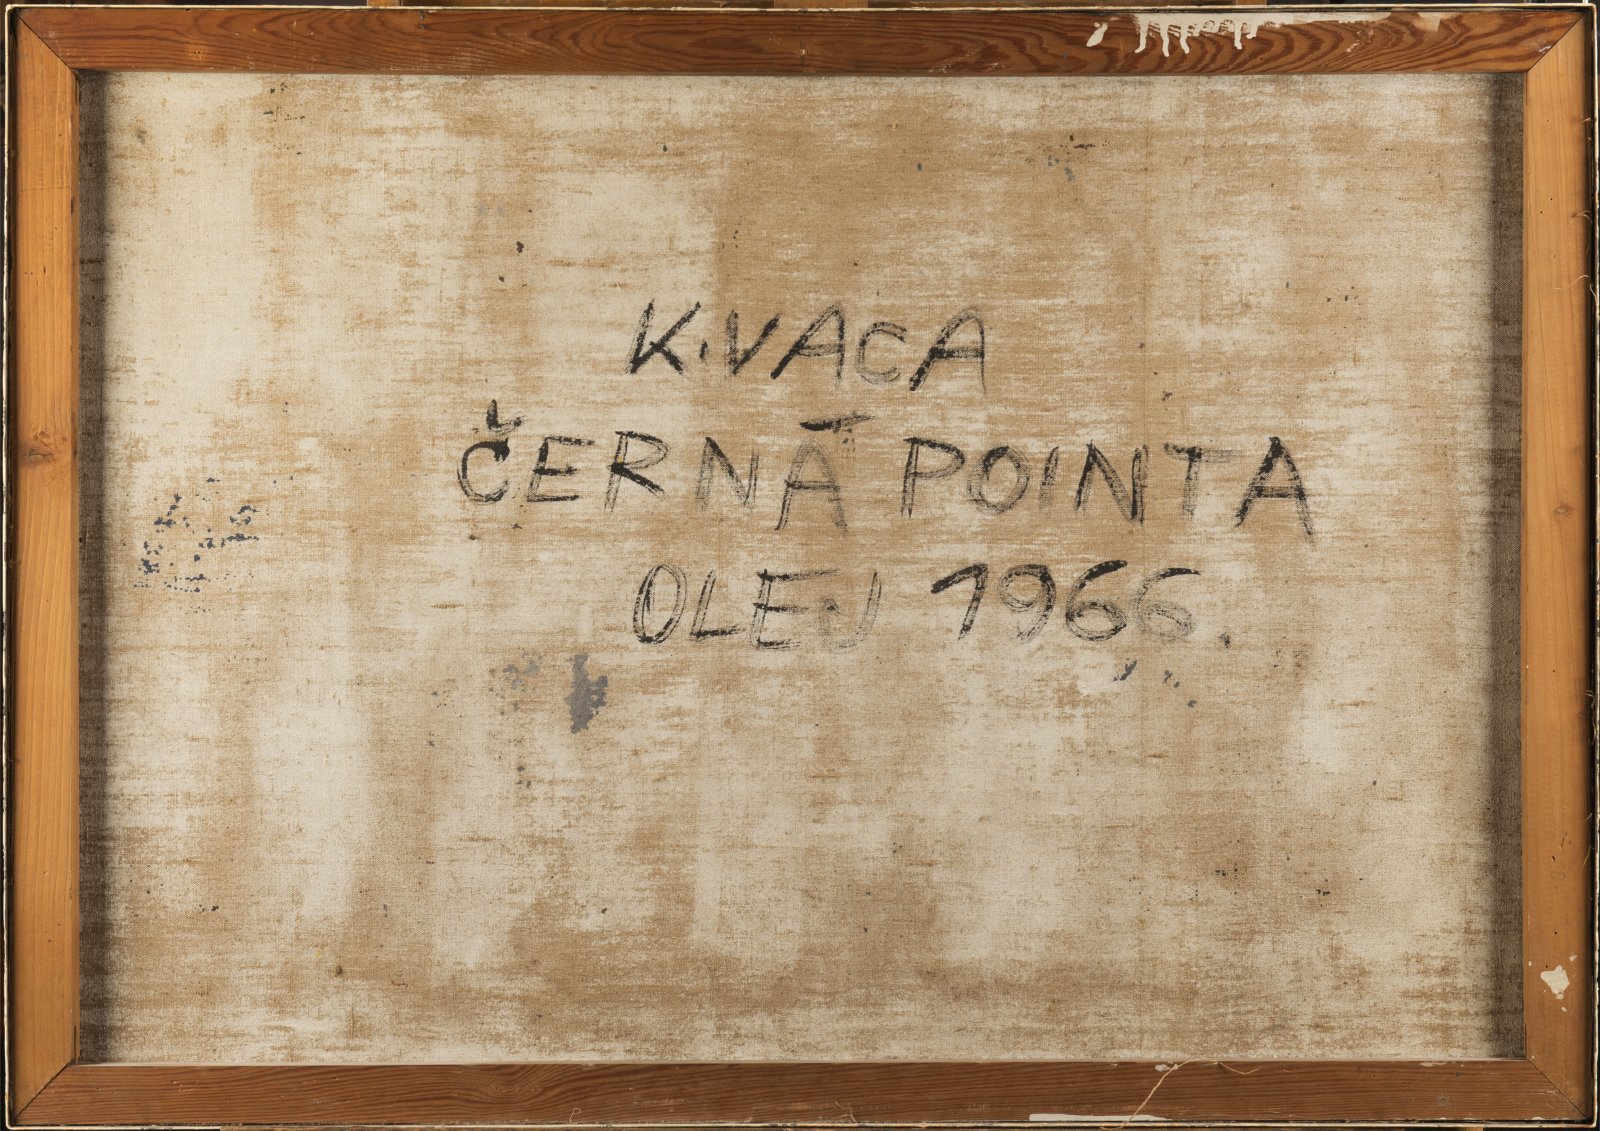 K. VACA
ČERNÁ POINTA
OLEJ 1966.